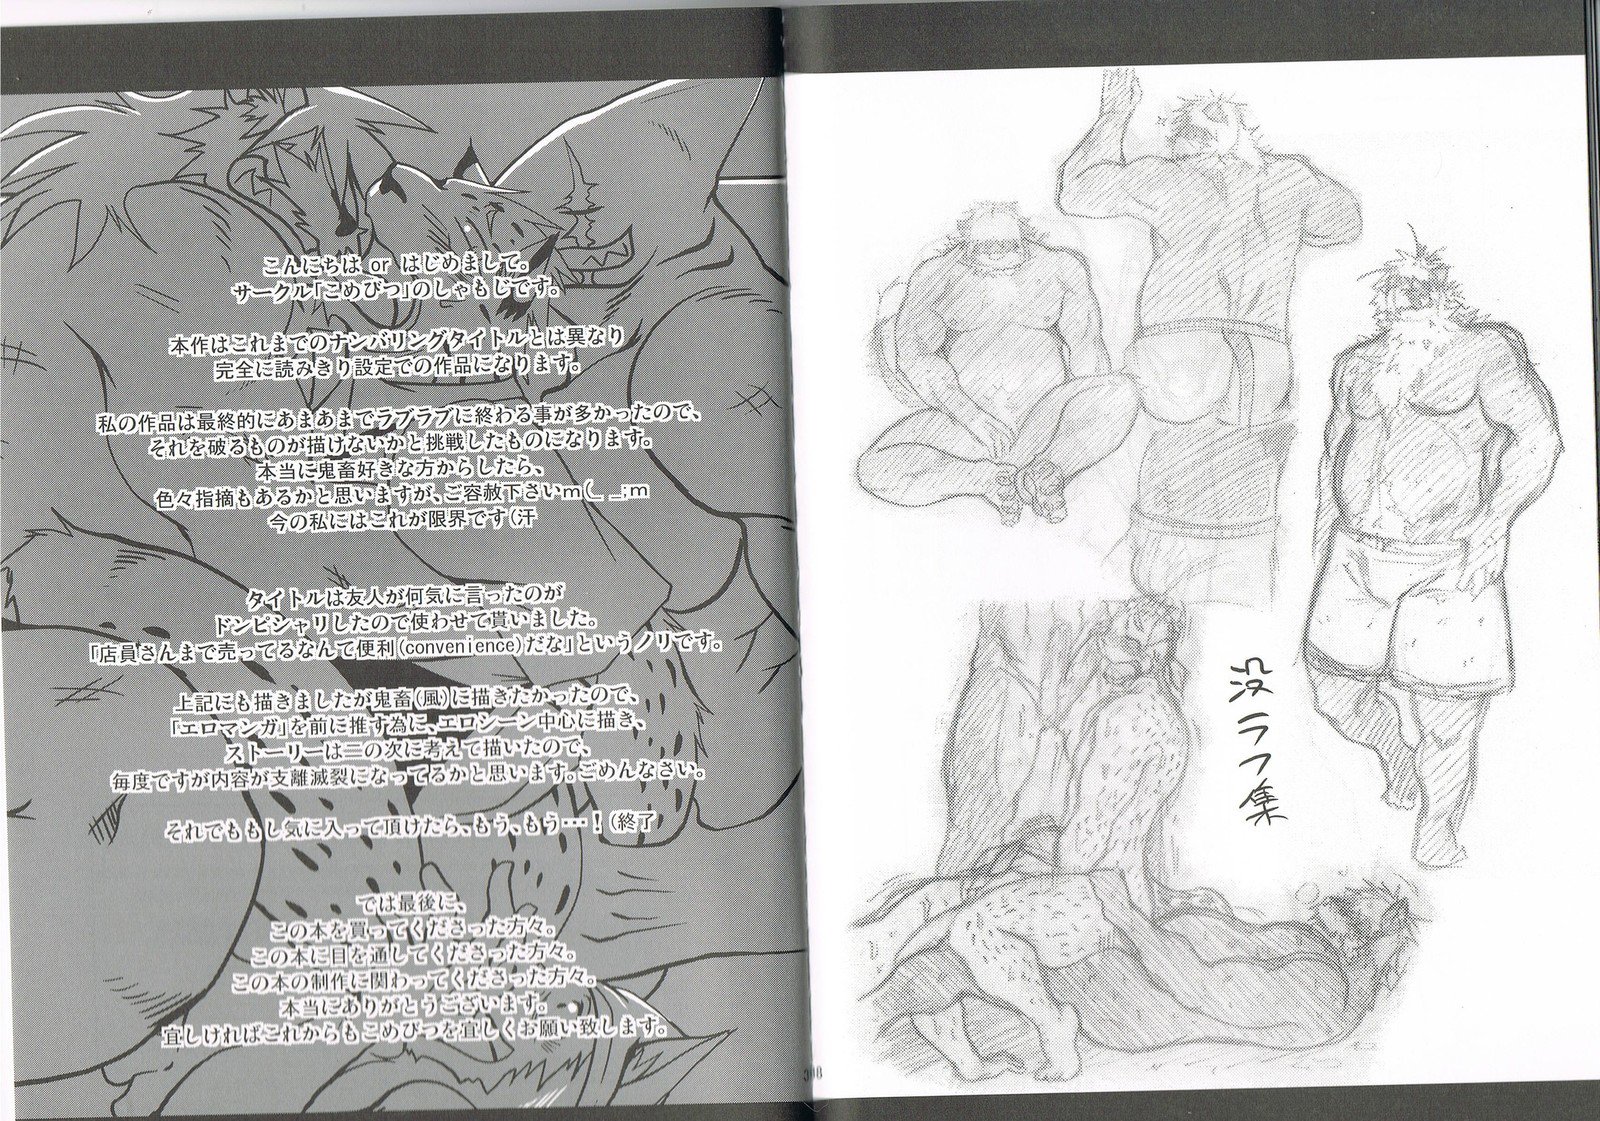 こんにちは or はじめまして。
サークル「こめびつ」のしゃもじです。
本作はこれまでのナンバリングタイトルとは異なり
完全に読みきり設定での作品になります。
私の作品は最終的にあまあまでラブラブに終わる事が多かったので、
それを破るものが描けないかと挑戦したものになります。
本当に鬼畜好きな方からしたら、
色々指摘もあるかと思いますが、ご容赦下さいm(_ _;m
今の私にはこれが限界です(汗
タイトルは友人が何気に言ったのが
ドンピシャリしたので使わせて貰いました。
「店員さんまで売ってるなんて便利(convenience)だな」というノリです。
上記にも描きましたが鬼畜(風)に描きたかったので、
「エロマンガ」を前に推す為に、エロシーン中心に描き、
ストーリーは二の次に考えて描いたので、
毎度ですが内容が支離滅裂になってるかと思います。ごめんなさい。
それでももし気に入って頂けたら、もう、もう…！(終了
では最後に、
この本を買ってくださった方々。
この本に目を通してくださった方々。
この本の制作に関わってくださった方々。
本当にありがとうございます。
宜しければこれからもこめびつを宜しくお願い致します。
没ラフ集